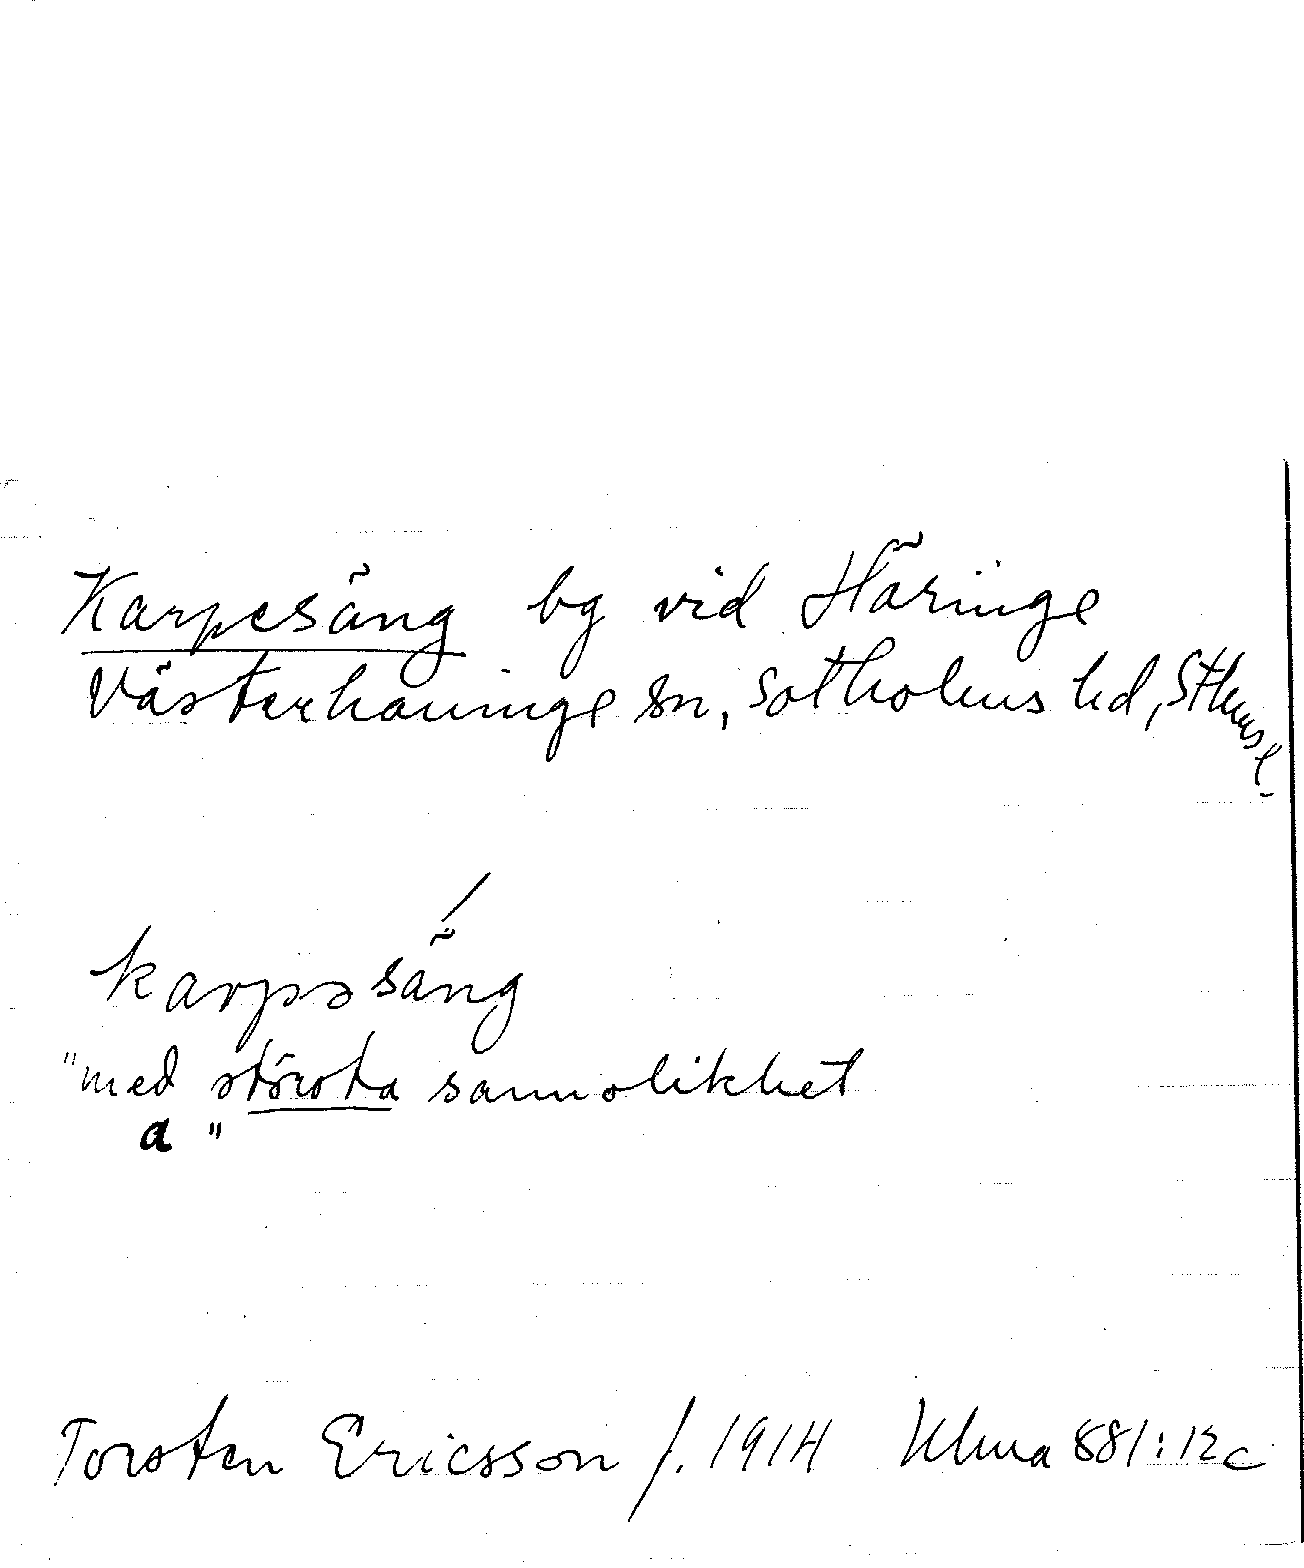 Karpesäng bg vid Häringe
Västerhaninge sn, Sotholms hd, Sthms l.
karpəsäng
"med största sannolikhet
a "
Torsten Ericsson f. 1914 Ulma 881:12c